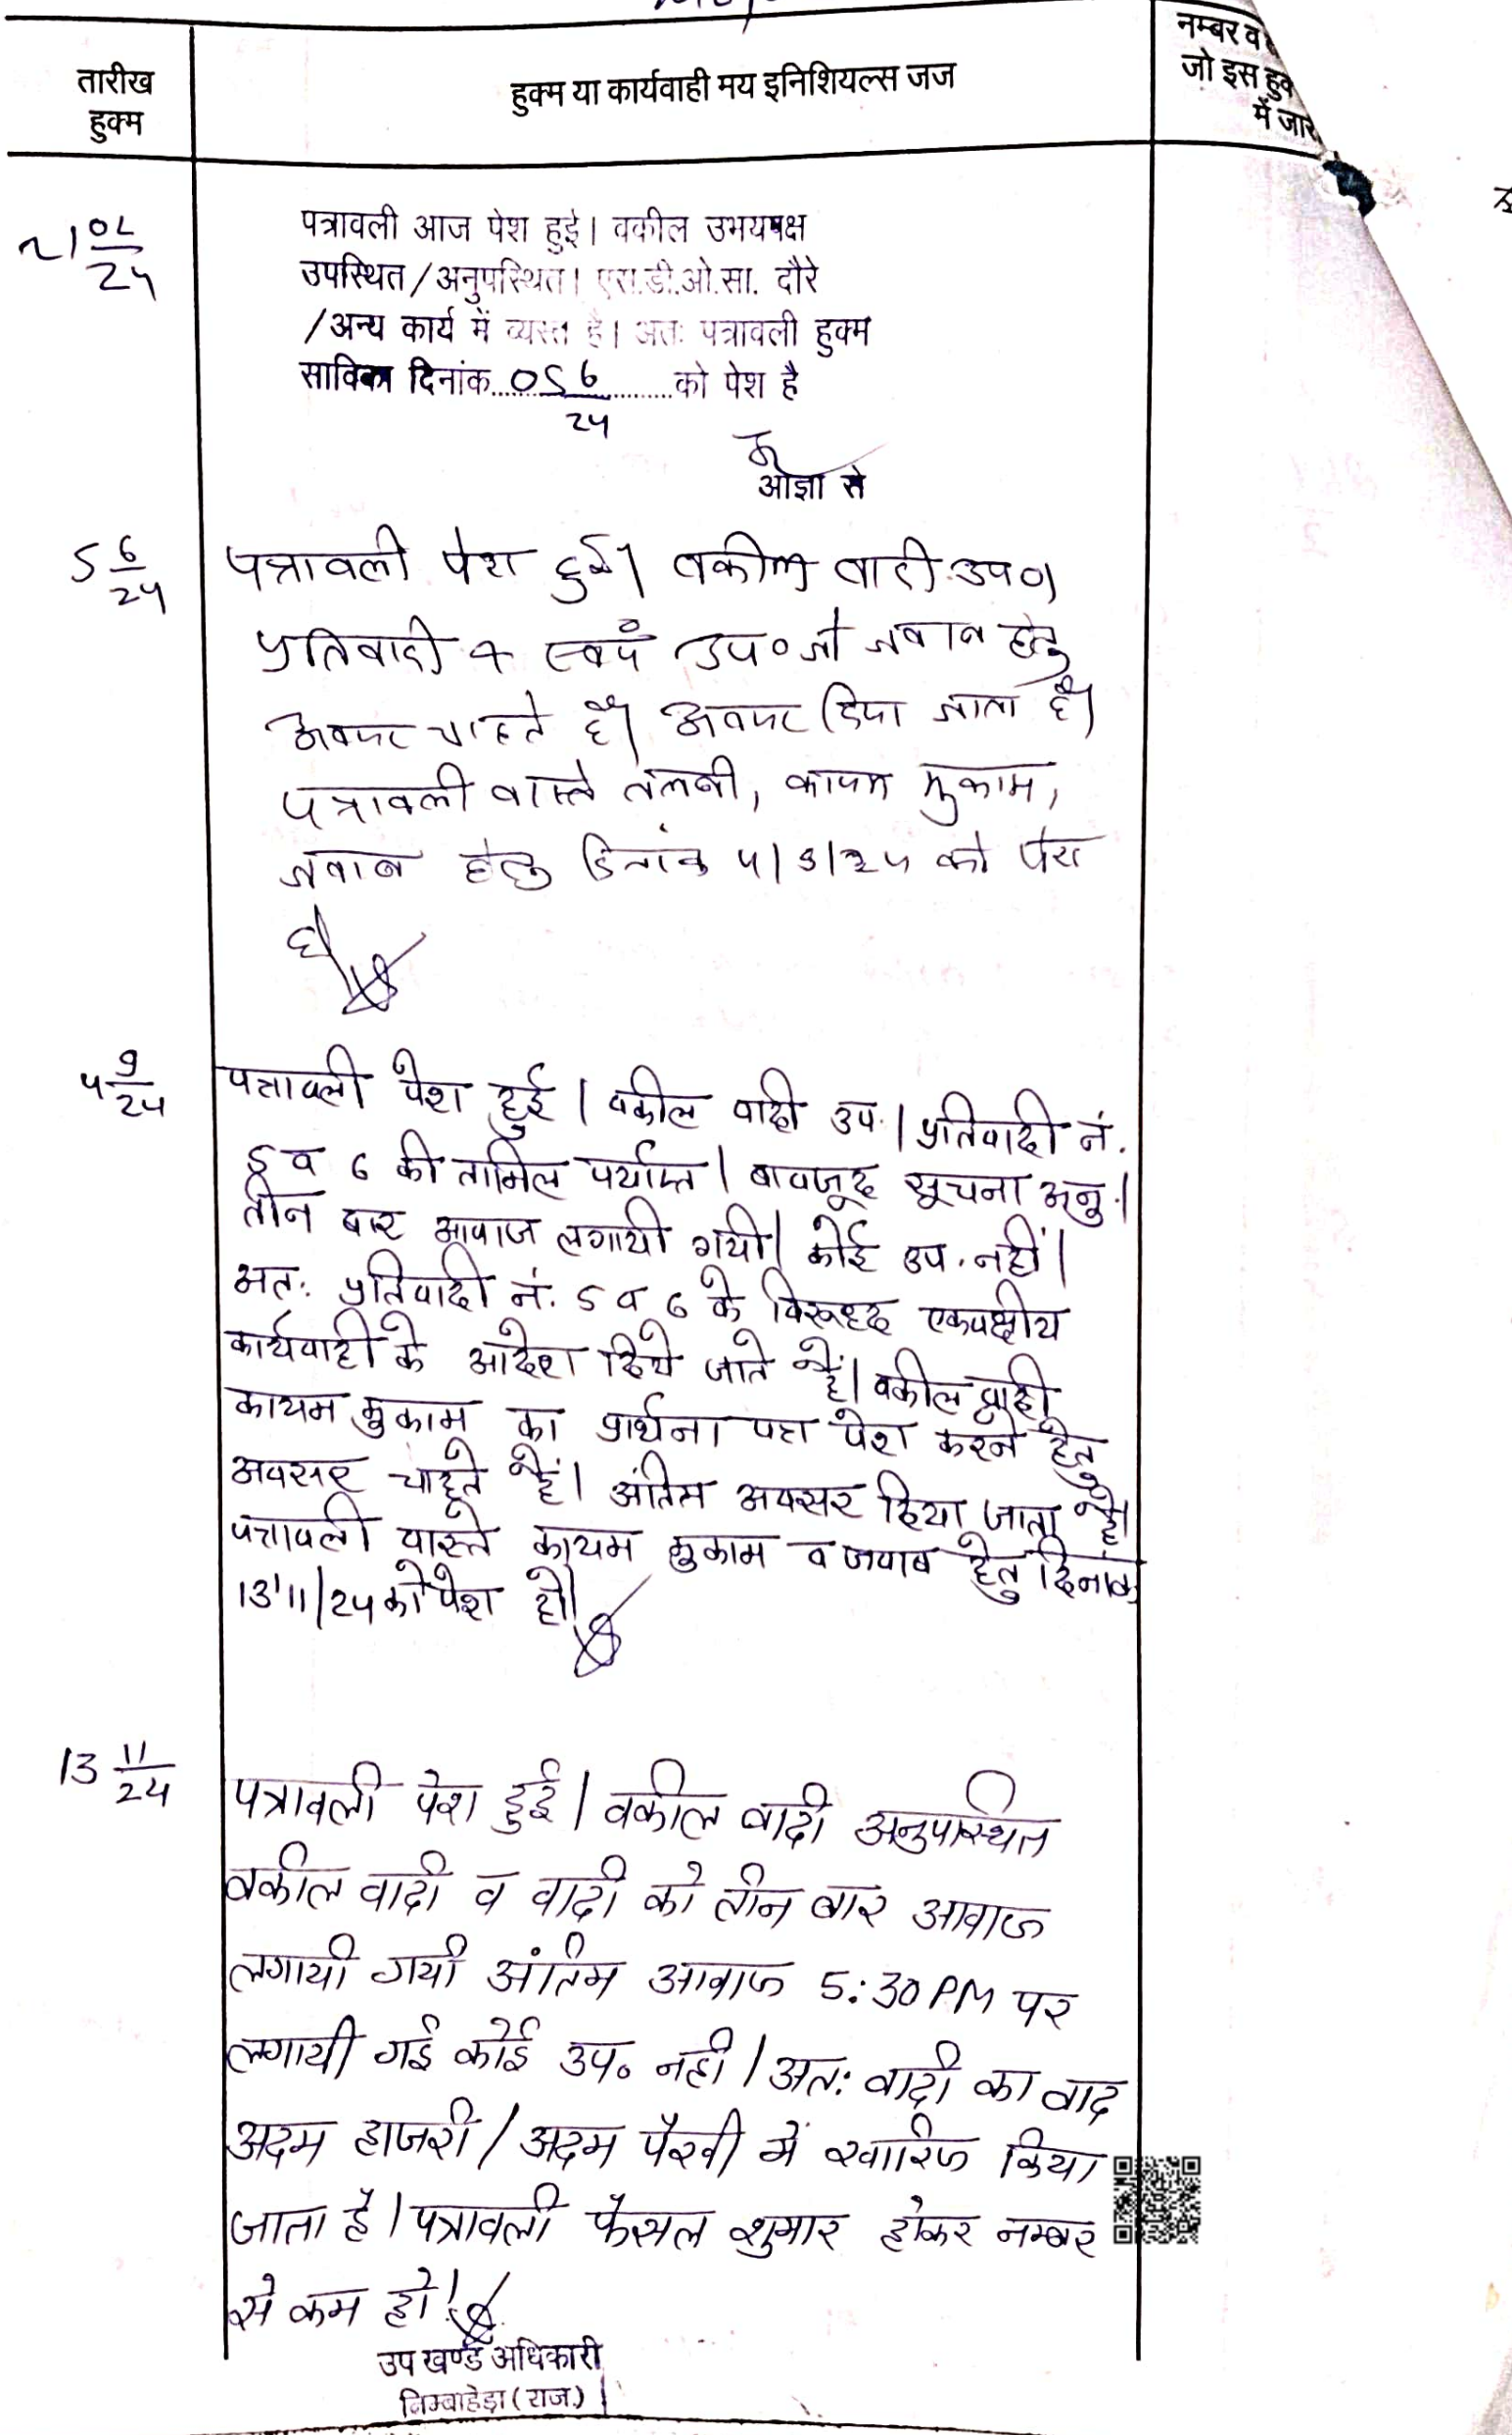 तारीख
हुक्म
हुक्म या कार्यवाही मय इनिशियल्स जज
नम्बर व
जो इस हुक
में जार
पत्रावली आज पेश हुई। वकील उभयपक्ष
उपस्थित/अनुपस्थित। एस.डी.ओ.सा. दौरे
/अन्य कार्य में व्यस्त है। अतः पत्रावली हुक्म
साविका दिनांक 05 6/24 को पेश है
आज्ञा से
5 6/24
पत्रावली पेश हुई। वकील वादी उप०।
प्रतिवादी 4 स्वयं उप० जो जवाब हेतु
अवसर चाहते है। अवसर दिया जाता है।
पत्रावली वास्ते तलबी, कायम मुकाम,
जवाब हेतु दिनांक 4/9/24 को पेश
हो।
4 9/24
पत्रावली पेश हुई। वकील वादी उप.। प्रतिवादी नं.
5 व 6 की तामिल पर्याप्त। बावजूद सूचना अनु.।
तीन बार आवाज लगायी गयी। कोई उप. नहीं।
अतः प्रतिवादी नं. 5 व 6 के विरूध्द एकपक्षीय
कार्यवाही के आदेश दिये जाते हैं। वकील वादी
कायम मुकाम का प्रार्थना पत्र पेश करने हेतु
अवसर चाहते हैं। अंतिम अवसर दिया जाता है।
पत्रावली वास्ते कायम मुकाम व जवाब हेतु दिनांक
13/11/24 को पेश हो।
13 11/24
पत्रावली पेश हुई। वकील वादी अनुपस्थित
वकील वादी व वादी को तीन बार आवाज
लगायी गयी अंतिम आवाज 5:30 PM पर
लगायी गई कोई उप० नही। अतः वादी का वाद
अदम हाजरी/अदम पैरवी में खारिज किया
जाता है। पत्रावली फैसल शुमार होकर नम्बर
से कम हो।
उप खण्ड अधिकारी
निम्बाहेड़ा (राज.)